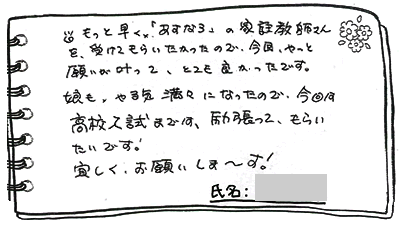 もっと早く、「あすなろ」の家庭教師さん
を、受けてもらいたかったので、今回、やっと
願いが叶って、とても良かったです。
娘も、やる気満々になったので、今回は
高校入試までは、励張って、もらい
たいです!
宜しく、お願いしま〜す!
氏名: